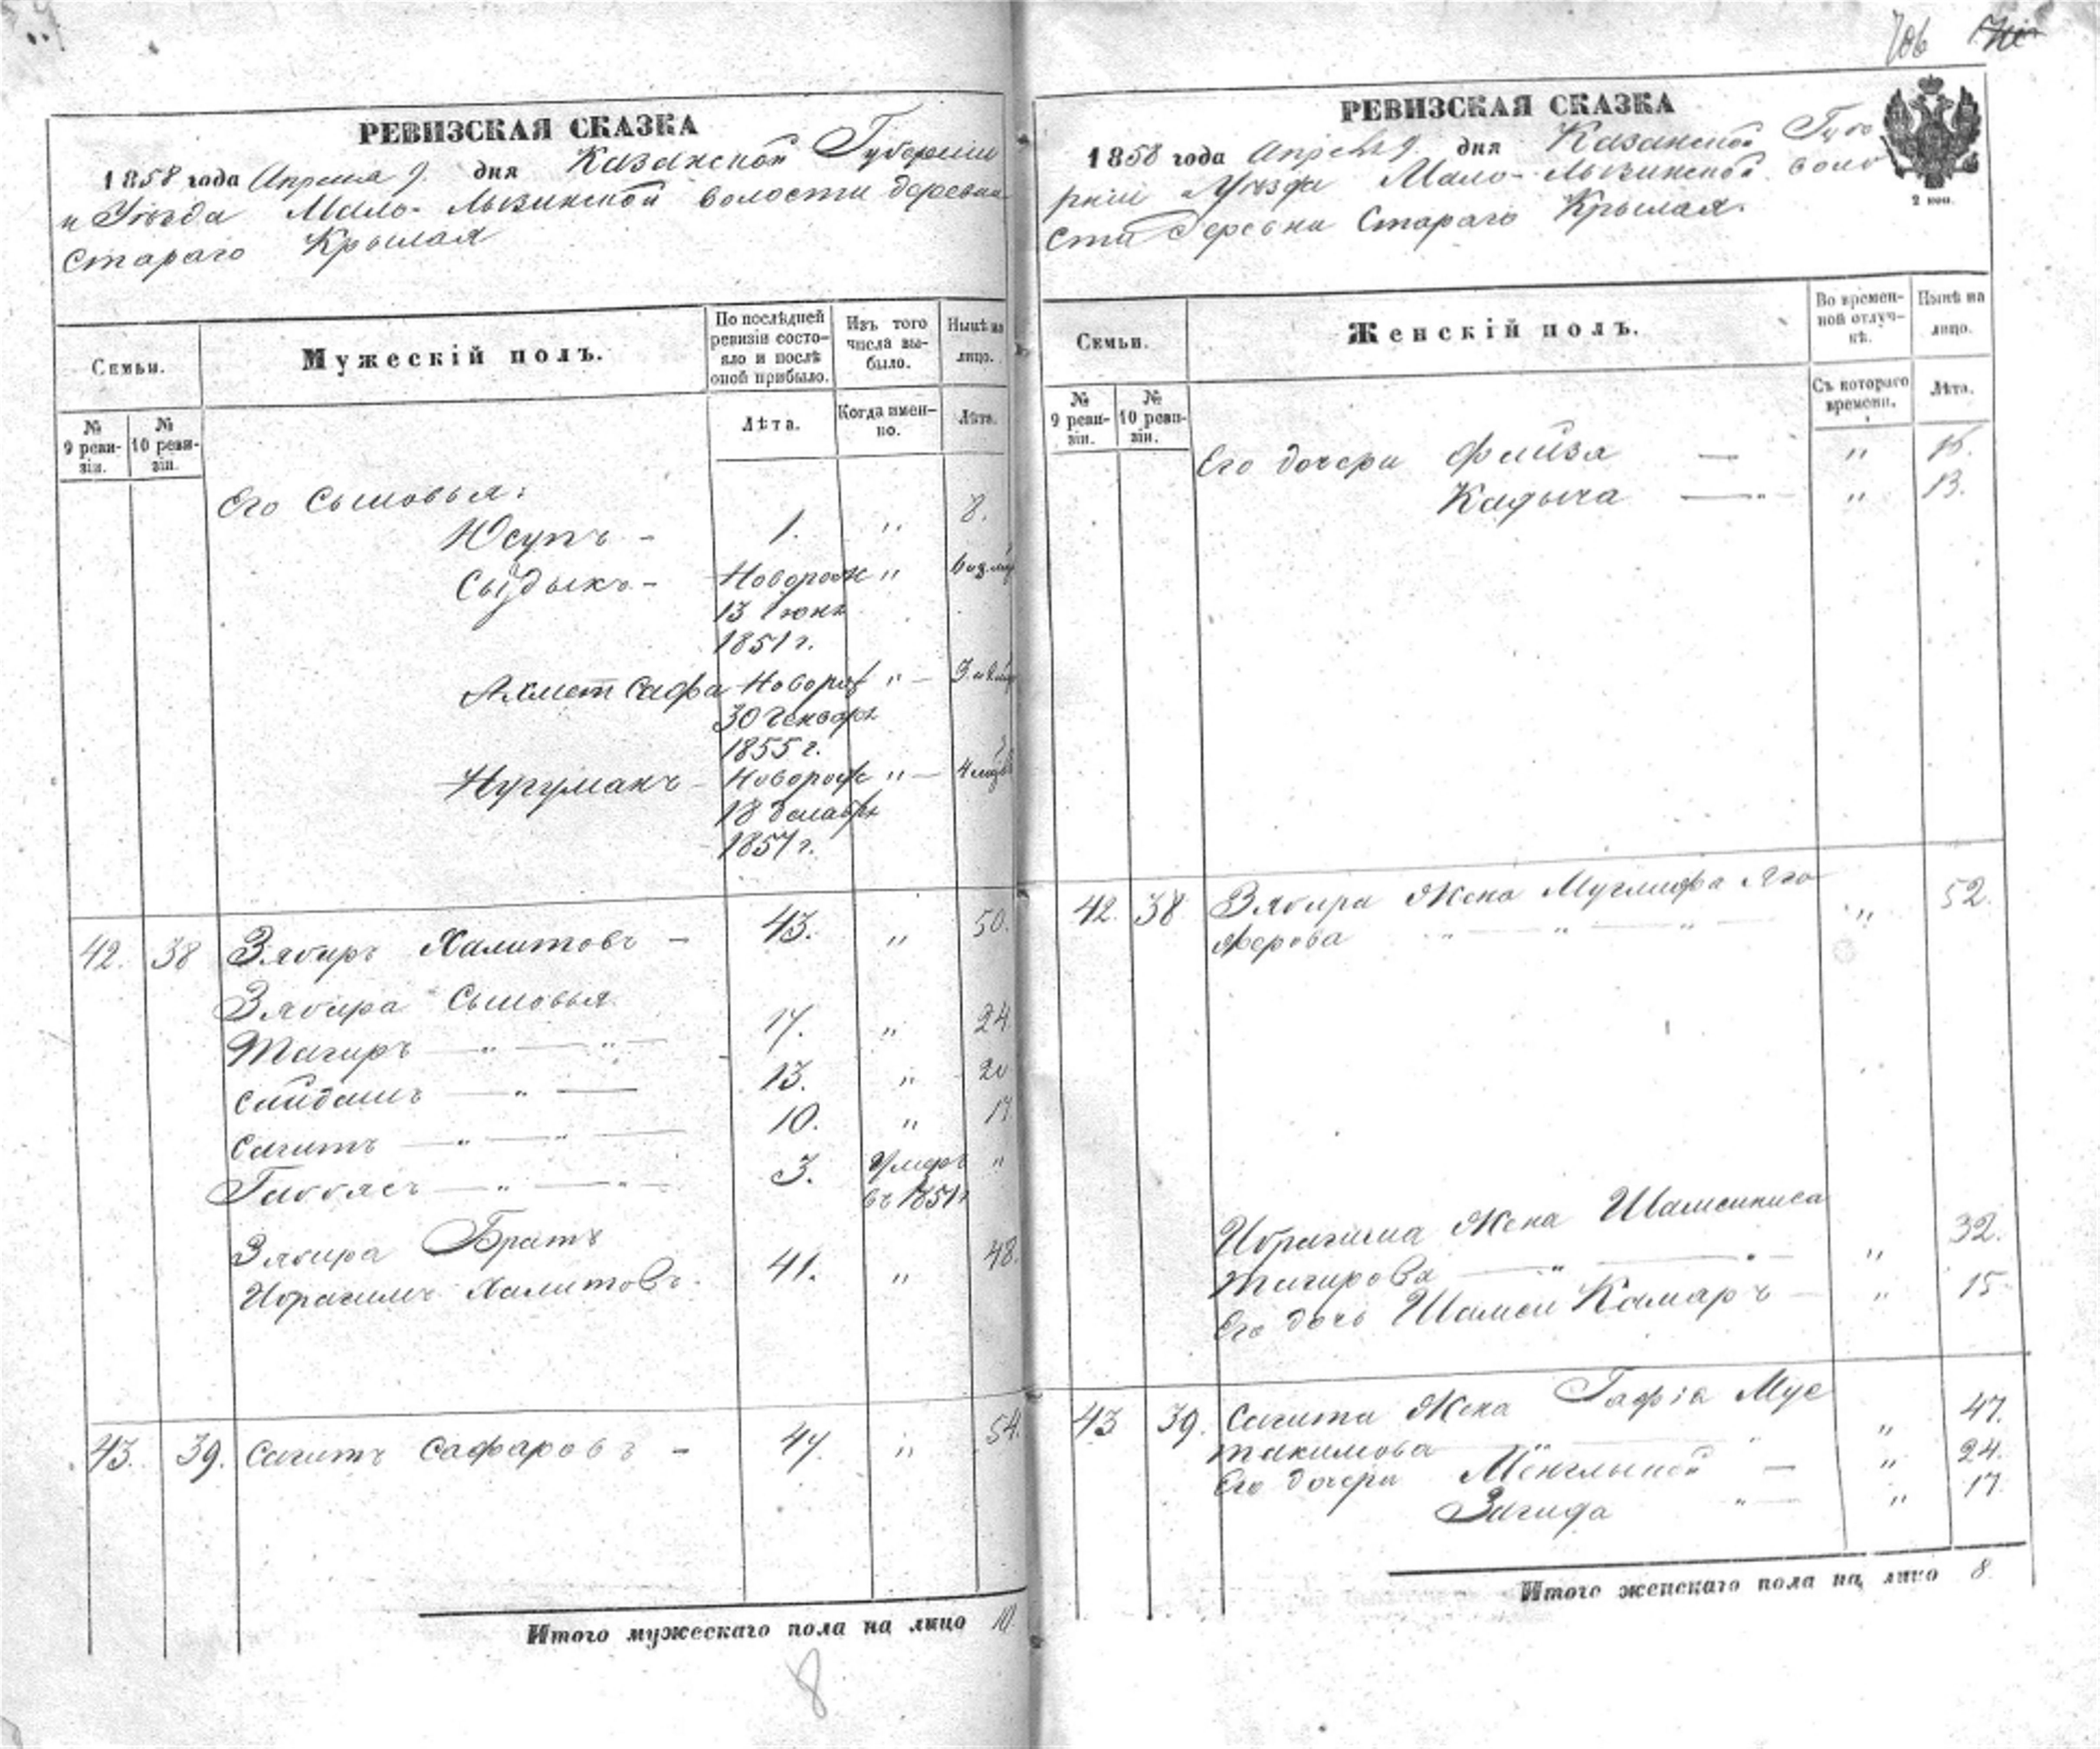 706
РЕВИЗСКАЯ СКАЗКА
1858 года Апреля 9. дня Казанской Губернии
и Уѣзда Мало-Лызинской волости деревни
Стараго Крылая
Семьи.
Мужескій полъ.
По послѣдней ревизіи состояло и послѣ оной прибыло.
Изъ того числа выбыло.
Нынѣ на лицо.
№ 9 ревизіи.
№ 10 ревизіи.
Лѣта.
Когда именно.
Лѣта.
Его Сыновья:
Юсупъ - 1. " 8.
Сыдыкъ - Новорож "
13 Июня
1851 г.
Ахметсафа Новорож " -
30 Генваря
1855 г.
Нугуманъ - Новорож " -
18 декабря
1857 г.
42. 38 Зябиръ Халитовъ - 43. " 50.
Зябира Сыновья
Тагиръ — " — " — 17. " 24
Сайдашъ — " — 13. " 20
Сагитъ — " — " — 10. " 17.
Габбясъ — " — " — 3. Умеръ "
въ 1851 г
Зябира Братъ
Ибрагимъ Халитовъ. 41. " 48.
43. 39. Сагитъ Сафаровъ - 47. " 54.
Итого мужескаго пола на лицо 10.
8
РЕВИЗСКАЯ СКАЗКА
1858 года Апреля 9. дня Казанской Губе
рніи Уѣзда Мало-Лызинской воло
сти деревни Стараго Крылая.
2 коп.
Семьи.
Женскій полъ.
Во временной отлучкѣ.
Нынѣ на лицо.
№ 9 ревизіи.
№ 10 ревизіи.
Съ котораго времени.
Лѣта.
Его дочери Файза — "
Кадыча — " " 13.
42. 38 Зябира Жена Муглифа Яго
фербва — " — " — " — " 52.
Ибрагима Жена Шамсиниса
Тагирова — " — " — " 32.
Его дочь Шамси Камаръ — " 15
43 39. Сагита Жена Гафіа Мус
такимова — " — " 47.
Его дочери — " 24.
Загида " — " 17.
Итого женскаго пола на лицо 8